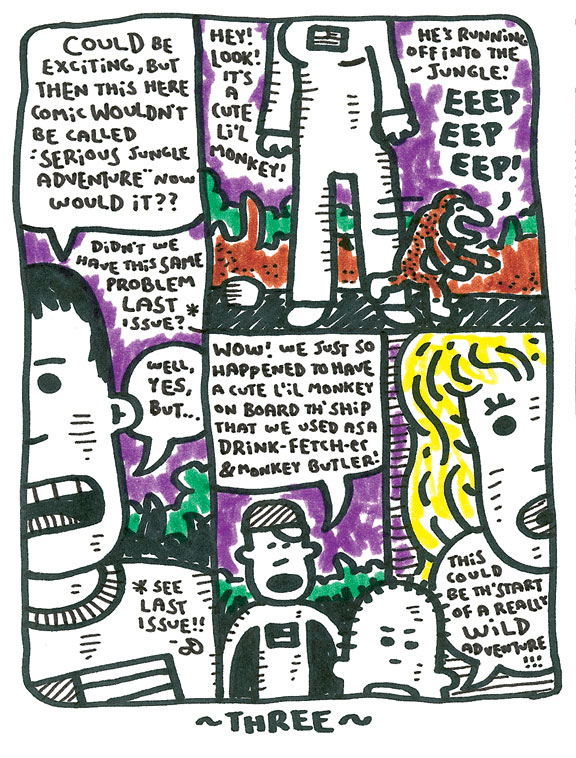 COULD BE
EXCITING, BUT
THEN THIS HERE
COMIC WOULDN'T
BE CALLED
"SERIOUS JUNGLE
ADVENTURE" NOW
WOULD IT??
DIDN'T WE
HAVE THIS SAME
PROBLEM
LAST
ISSUE?*
WELL,
YES,
BUT...
*SEE
LAST
ISSUE!!
HEY!
LOOK!
IT'S
A
CUTE
LI'L
MONKEY!
HE'S RUNNING
OFF INTO THE
JUNGLE!
EEEP
EEP
EEP!
WOW! WE JUST SO
HAPPENED TO HAVE
A CUTE L'IL MONKEY
ON BOARD TH' SHIP
THAT WE USED AS A
DRINK-FETCH-er
& MONKEY BUTLER!
THIS
COULD
BE TH' START
OF A REALLY
WiLD
ADVENTURE
!!!
~THREE~